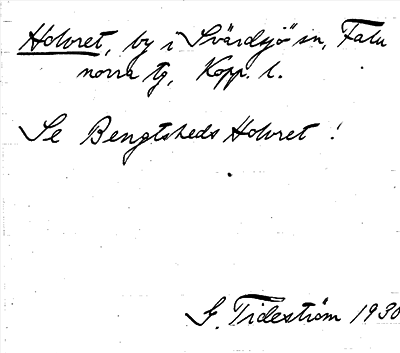 Holvret, by i Svärdsjö sn, Falu
norra tg, Kopp. l.
Se Bengtsheds Holvret !
G. Tideström 1930